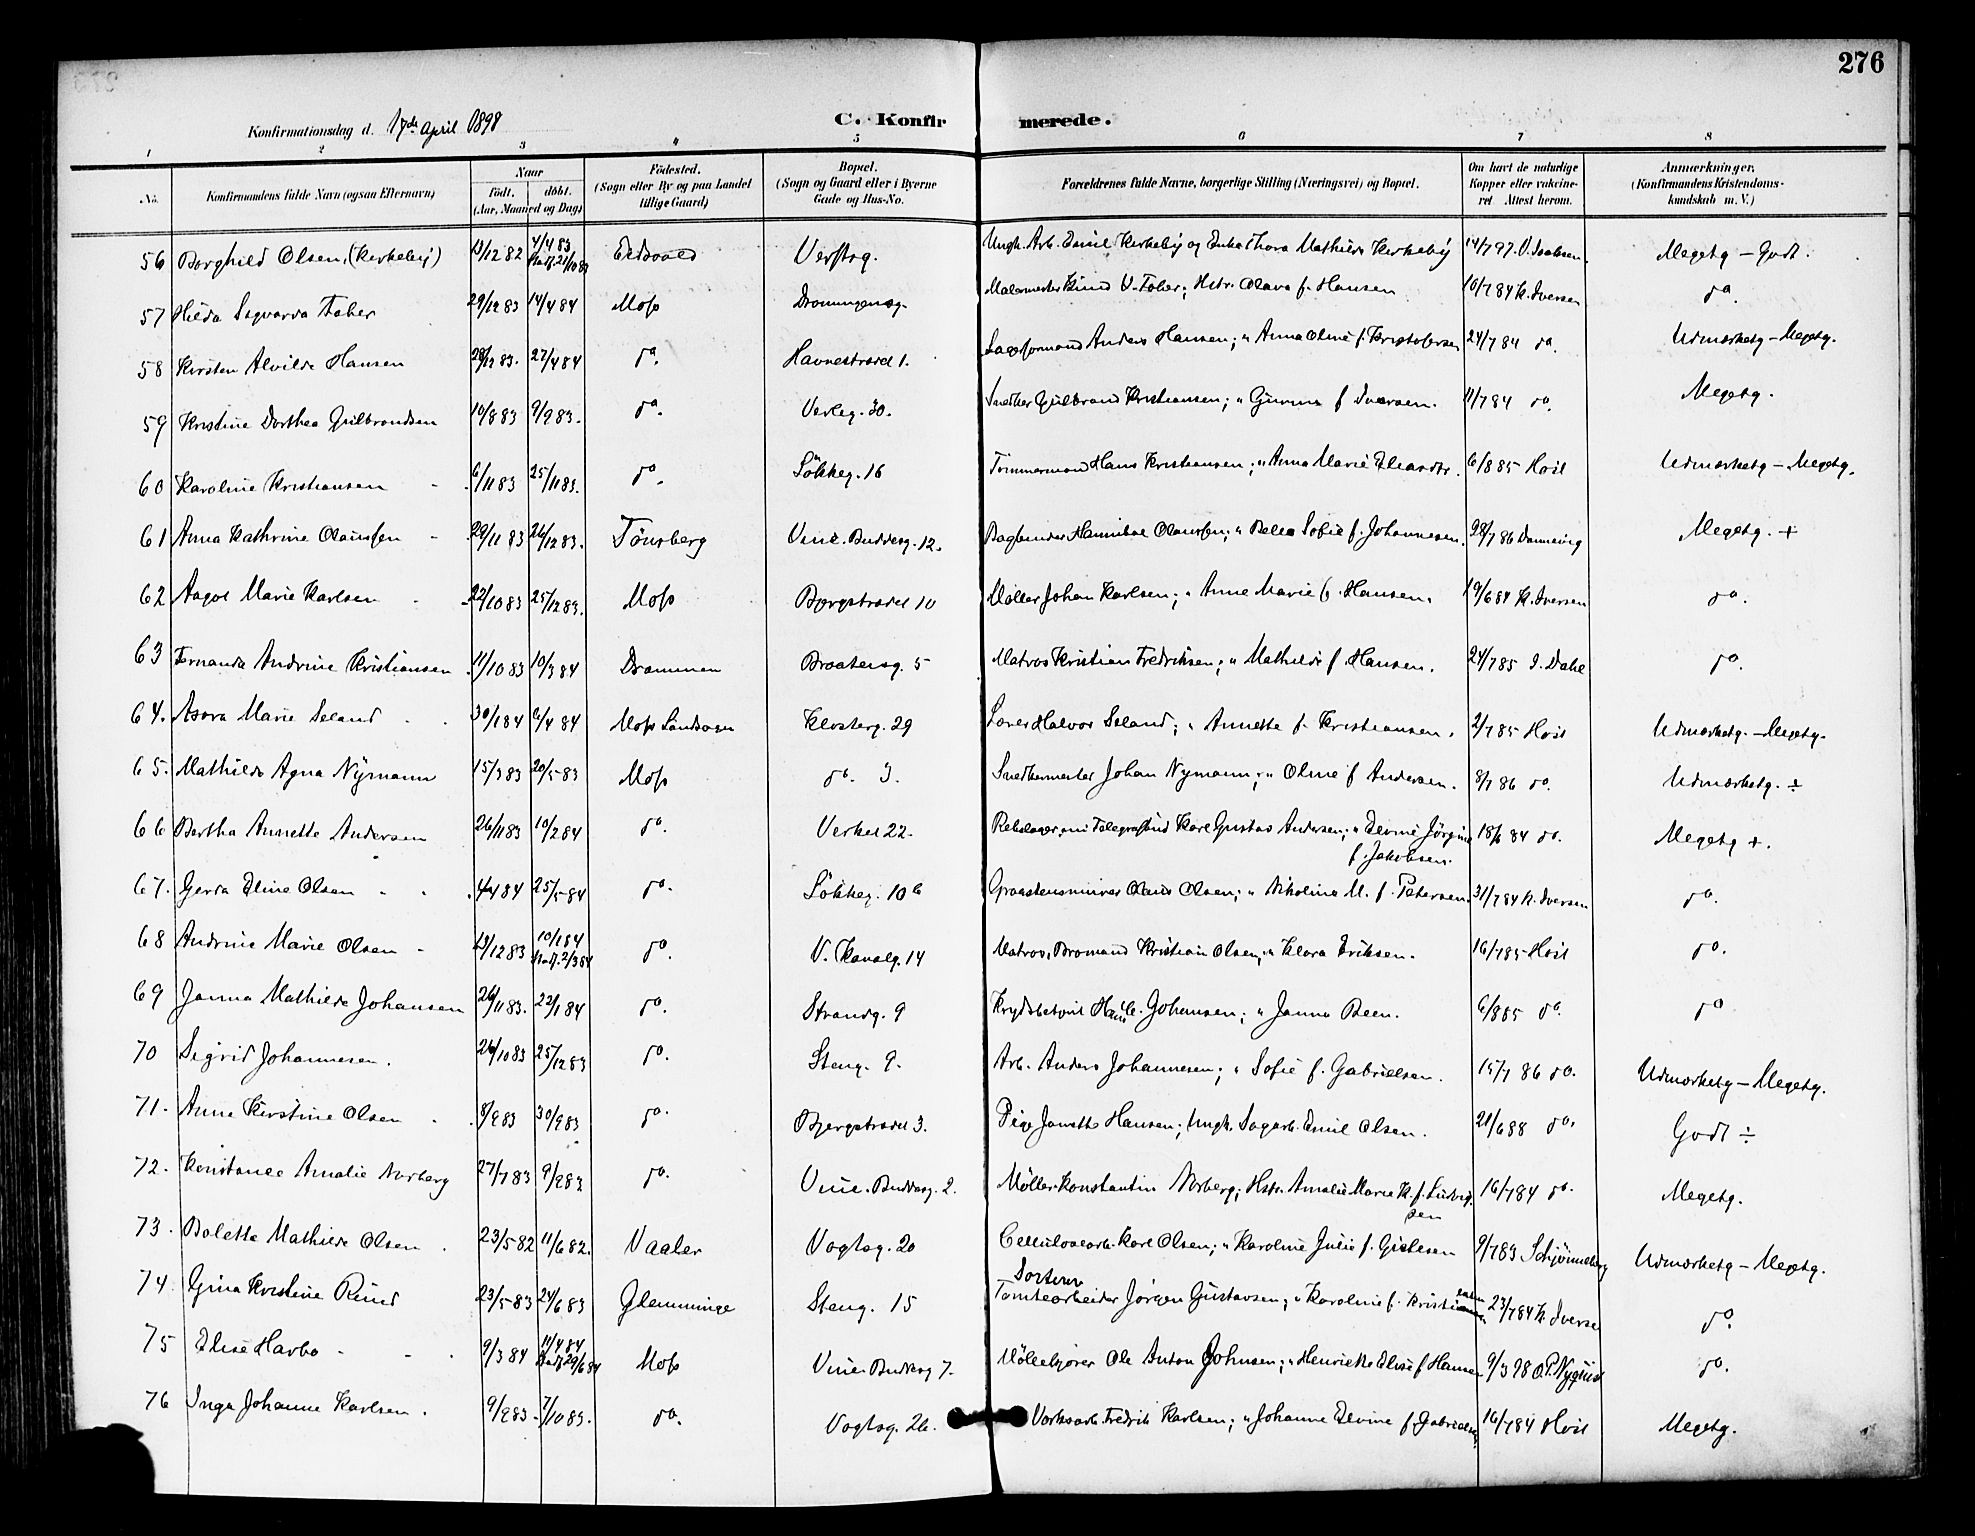 276
Konfirmationsdag d. 17de April 1898
C. Konfirmerede.
1 2 3 4 5 6 7 8
No. Konfirmandens fulde Navn (ogsaa Efternavn) Naar født. døbt. (Aar, Maaned og Dag) Fødested. (Sogn eller By og paa Landet tillige Gaard) Bopæl. (Sogn og Gaard eller i Byerne Gade og Hus-No. Forældrenes fulde Navne, borgerlige Stilling (Næringsvei) og Bopæl. Om havt de naturlige Kopper eller vakcineret Attest herom. Anmærkninger, (Konfirmandens Kristendomskundskab m. V.)
56 Borghild Olsen, (Kirkeby) 13/12 82 4/4 83 Eidsvold Verftsg. Ungk. Arb. Emil Kirkeby og Enke Thora Mathilde Kirkeby 14/7 97. Megetg – Godt.
57 Hilda Sigvarda Faber 29/12 83 14/4 84 Moss Dronningensg. Malermester Knud V. Faber; Hstr. Olava f. Hansen 10/7 84 K. Iversen do.
58 Kirsten Alvilde Hansen 28/12 83. 27/4 84 do. Havnestrædet 1. Anders Hansen; " Anna Oline f. Kristofersen 24/7 84 do. Udmærketg – Megetg.
59 Kristine Dorthea Gulbrandsen 10/8 83 9/9 83. do. Verleg. 30. Snedker Gulbrand Kristiansen; " Gunine f. Iversen. 11/7 84 do. Megetg.
60 Karoline Kristiansen 6/11 83 25/11 83. do. Løkkeg. 16 Tømmermand Hans Kristiansen; " Anna Marie 6/8 85 Hvil Udmærketg – Megetg.
61 Anna Kathrine Olaussen 29/11 83 26/12 83. Tønsberg Vinc. Buddesg. 12. Bogbinder Hannibal Olaussen; " Sofie f. Johannesen. 28/7 86 Megetg. +
62 Aagot Marie Karlsen 22/10 83 25/12 83. Moss Bjergstrædet 10 Møller Johan Karlsen; " Anne Marie f. Hansen. 19/6 84 K. Iversen do.
63 Fernanda Andrine Kristiansen 11/10 83 10/3 84 Drammen Braatensg. 5 Matros Kristian Fredriksen; " Mathilde f. Hansen. 24/7 85 I. Dahl do.
64. Asora Marie Seland 30/1 84 6/4 84 Moss Landsogn Klosterg. 29 Halvor Seland; " Annette f. Kristiansen. 2/7 85 Hvil Udmærketg. – Megetg.
65. Mathilde Agna Nymann 15/3 83 20/5 83 Moss do. 3. Snedkermester Johan Nymann; " Oline f. Andersen. 8/7 86 do. Udmærketg. ÷
66 Bertha Annette Andersen 26/11 83 10/2 84 do. Verket 22. Karl Gustav Andersen; " Elvine Jørgine f. Jakobsen. 18/6 84 do. Megetg +.
67. Gerda Eline Olsen 4/4 84 25/5 84 do. Løkkeg. 10b Graastensminør Olaus Olsen; " Nikoline M. f. Petersen. 31/7 84 K. Iversen do.
68 Andrine Marie Olsen 13/12 83 10/1 84 2/3 84 do. V. Kanalg. 14 Matros, Bromand Kristian Olsen; " Klara Eriksen. 16/7 85 Hvil do.
69 Janna Mathilde Johansen 26/11 83. 22/1 84 do. Strandg. 9 Hans C. Johansen; " Janna Been. 6/8 85 do. do
70 Sigrid Johannesen. 26/10 83 25/12 83 do. Steng. 9. Arb. Anders Johannesen; " Sofie f. Gabrielsen. 15/7 86 do. Udmærketg – Megetg.
71. Anne Kirstine Olsen 8/9 83 30/9 83 do. Bjergstrædet 3. Pige Janette Hansen; Ungk. Sagarb. Emil Olsen. 21/6 88 do. Godt ÷
72. Konstance Amalie Norberg 27/7 83 9/9 83 do. Vinc. Buddesg. 2. Møller Konstantin Norberg; Hstr. Amalie Marie K. f. Ludvigsen 16/7 84 do. Megetg.
73. Bolette Mathilde Olsen 23/5 82 11/6 82. Vaaler Vogtsg. 20 Cellulosearb. Karl Olsen; " Karoline Julie f. Gislesen 9/7 83 Schjønneberg Udmærketg – Megetg.
74 Gina Kristine Rund 23/5 83 24/6 83 Glemminge Steng. 15 Sorterer Tomtearbeider Jørgen Gustavsen; " Karoline f. Kristiansen 23/7 84 K. Iversen do.
75 Elise Harbo 9/3 84 11/4 84 29/6 84 Moss Vinc. Buddesg 7. Møllekjører Ole Anton Johnsen; " Henriette Elise f Hansen 9/3 98 O. P. Nyquist do.
76 Inga Johanne Karlsen. 9/9 83. 7/10 83. do. Vogtsg. 26. Verksarb. Fredrik Karlsen; " Johanne Elvine f. Gabrielsen 16/7 84 Hvil Megetg.